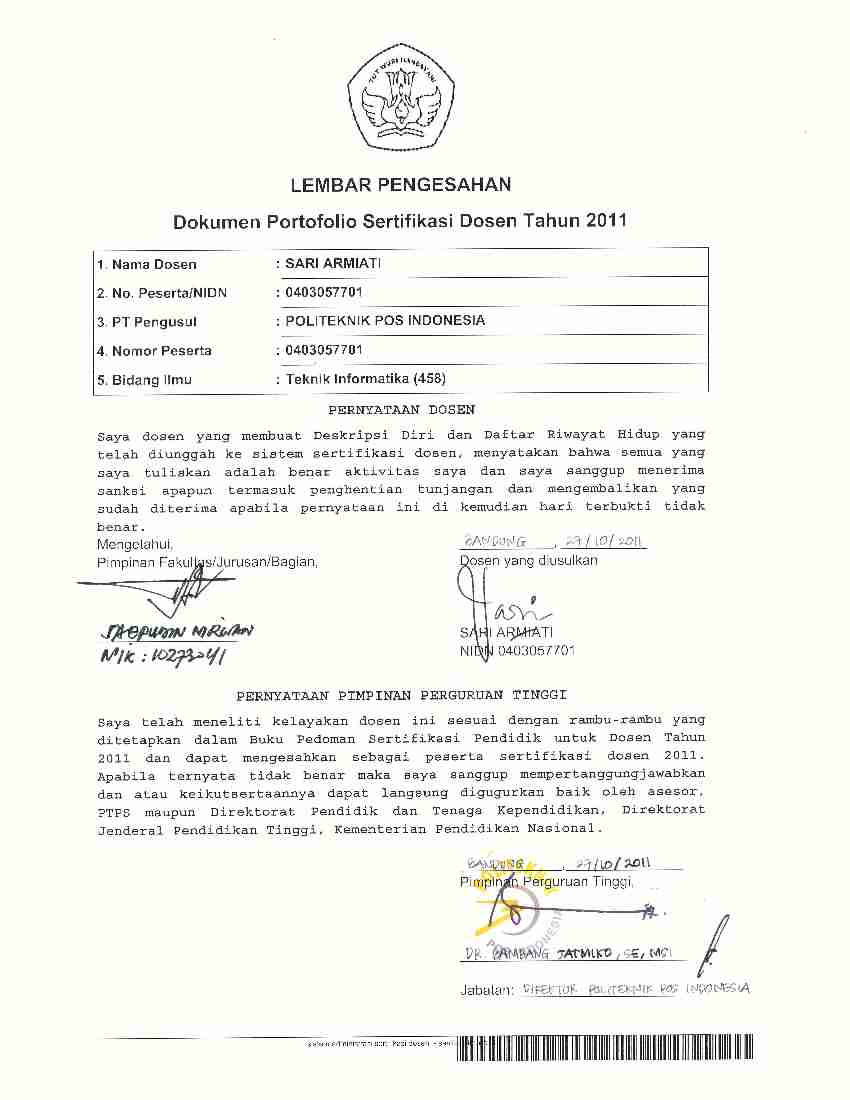 TUT WURI HANDAYANI
LEMBAR PENGESAHAN
Dokumen Portofolio Sertifikasi Dosen Tahun 2011
1. Nama Dosen : SARI ARMIATI
2. No. Peserta/NIDN : 0403057701
3. PT Pengusul : POLITEKNIK POS INDONESIA
4. Nomor Peserta : 0403057701
5. Bidang Ilmu : Teknik Informatika (458)
PERNYATAAN DOSEN
Saya dosen yang membuat Deskripsi Diri dan Daftar Riwayat Hidup yang
telah diunggah ke sistem sertifikasi dosen, menyatakan bahwa semua yang
saya tuliskan adalah benar aktivitas saya dan saya sanggup menerima
sanksi apapun termasuk penghentian tunjangan dan mengembalikan yang
sudah diterima apabila pernyataan ini di kemudian hari terbukti tidak
benar.
Mengetahui,
Pimpinan Fakultas/Jurusan/Bagian,
NIK : 10273041
BANDUNG, 27/10/2011
Dosen yang diusulkan
SARI ARMIATI
NIDN 0403057701
PERNYATAAN PIMPINAN PERGURUAN TINGGI
Saya telah meneliti kelayakan dosen ini sesuai dengan rambu-rambu yang
ditetapkan dalam Buku Pedoman Sertifikasi Pendidik untuk Dosen Tahun
2011 dan dapat mengesahkan sebagai peserta sertifikasi dosen 2011.
Apabila ternyata tidak benar maka saya sanggup mempertanggungjawabkan
dan atau keikutsertaannya dapat langsung digugurkan baik oleh asesor,
PTPS maupun Direktorat Pendidik dan Tenaga Kependidikan, Direktorat
Jenderal Pendidikan Tinggi, Kementerian Pendidikan Nasional.
BANDUNG, 27/10/2011
Pimpinan Perguruan Tinggi,
DR. BAMBANG JATMIKO, SE, MSI
Jabatan: DIREKTUR POLITEKNIK POS INDONESIA